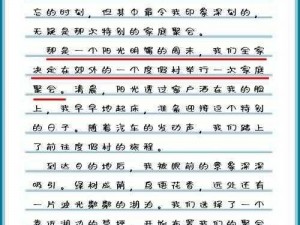 忘的时刻，但其中最令我印象深刻的，
无疑是那次特别的家庭聚会。
那是一个阳光明媚的周末，我们全家
决定在郊外的一个度假村举行一次家庭
聚会。清晨，阳光透过窗户洒在我的脸
上，我早早地起床，准备迎接这个特别
的日子。随着汽车的发动声，我们踏上
了前往度假村的旅程。
到达目的地后，我被眼前的景象深深
吸引。绿树成荫，鸟语花香，远处还有
一片波光粼粼的湖泊。我们选择了一个
靠近湖边的草坪，开始布置我们的聚会